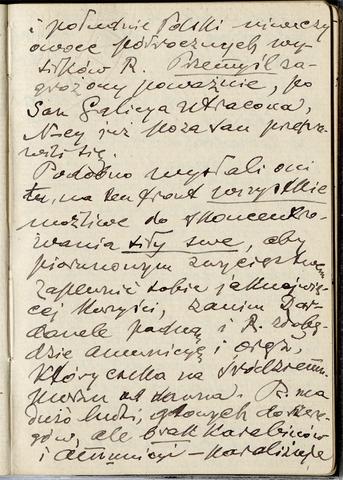 i południe Polski niweczy
owoce półrocznych wy-
siłków R. Przemyśl za-
grożony poważnie, po
San Galicya utracona,
N-cy już poza San przepra-
wili się.
Podobno wysłali oni
tu, na ten front wszystkie
możliwe do skoncentro-
wania siły swe, aby
piorunowym zwycięstwem
zapewnić sobie jaknajwię-
cej korzyści, zanim Dar-
danele padną i R. zdobę-
dzie amunicyę i oręż,
który czeka na śródziemn.
morzu od dawna. R. ma
dużo ludzi, gotowych do szere-
gów, ale brak karabinów
i amunicyi - paraliżuje